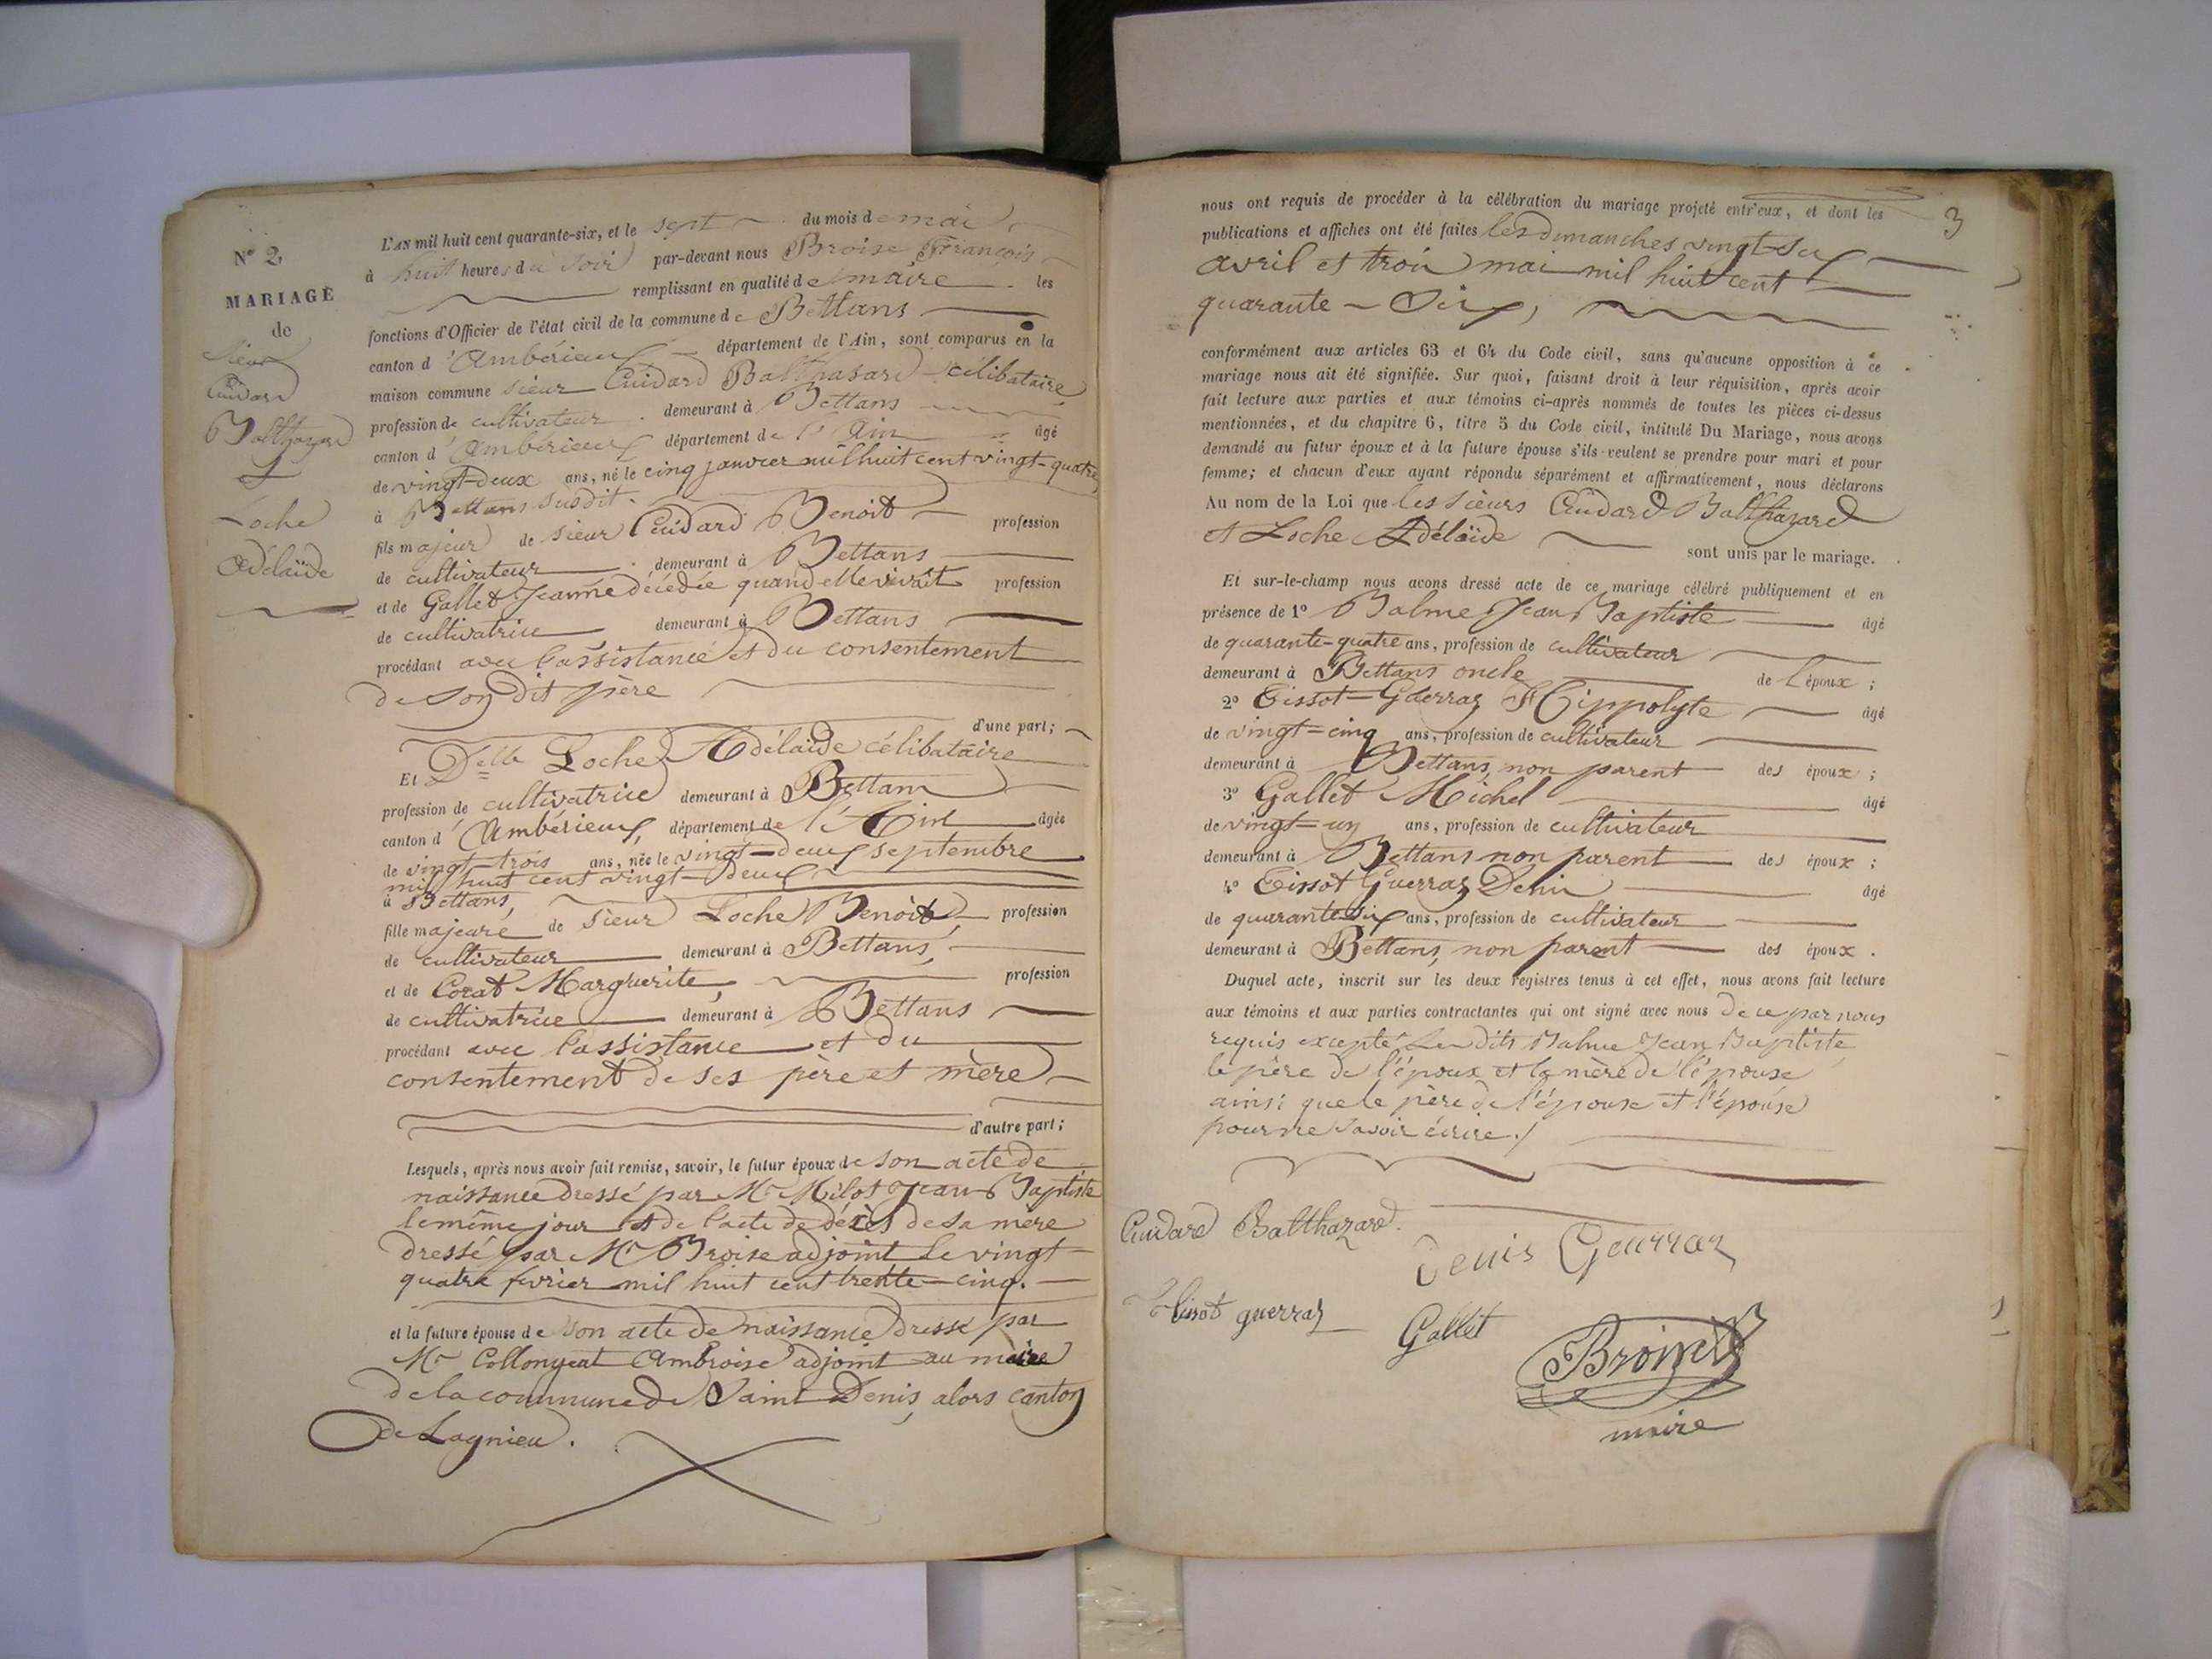 N° 2
MARIAGE
de
sieur
Cuidard
Balthazard
et
Loche
Adélaïde
L'AN mil huit cent quarante-six, et le sept du mois de mai
à huit heures du soir par-devant nous Broise François
remplissant en qualité de maire les
fonctions d'Officier de l'état civil de la commune de Bettans
canton d'Ambérieux département de l'Ain, sont comparus en la
maison commune sieur Cuidard Balthasard célibataire
profession de cultivateur demeurant à Bettans
canton d'Ambérieux département de l'Ain âgé
de vingt-deux ans, né le cinq janvier mil huit cent vingt-quatre
à Bettans susdit.
fils majeur de sieur Cuidard Benoit profession
de cultivateur demeurant à Bettans
et de Gallet Jeanne décédée quand elle vivait profession
de cultivatrice demeurant à Bettans
procédant avec l'assistance et du consentement
de son dit père
d'une part;
Et Delle Loche Adélaïde célibataire
profession de cultivatrice demeurant à Bettans
canton d'Ambérieux, département de l'Ain âgée
de vingt-trois ans, née le vingt-deux septembre
mil huit cent vingt-deux
à Bettans,
fille majeure de sieur Loche Benoit, profession
de cultivateur demeurant à Bettans,
et de Corat Marguerite, profession
de cultivatrice demeurant à Bettans
procédant avec l'assistance et du
consentement de ses père et mère
d'autre part;
Lesquels, après nous avoir fait remise, savoir, le futur époux de son acte de
naissance dressé par Mr Milot Jean-Baptiste
le même jour et de l'acte de décès de sa mère
dressé par Mr Broise adjoint le vingt-
quatre fevrier mil huit cent trente-cinq.
et la future épouse de son acte de naissance dressé par
Mr Collongeat Ambroise adjoint au maire
de la commune de Saint Denis, alors canton
de Lagnieu.
3
nous ont requis de procéder à la célébration du mariage projeté entr'eux, et dont les
publications et affiches ont été faites les dimanches vingt-six
avril et trois mai mil huit cent
quarante-six,
conformément aux articles 63 et 64 du Code civil, sans qu'aucune opposition à ce
mariage nous ait été signifiée. Sur quoi, faisant droit à leur réquisition, après avoir
fait lecture aux parties et aux témoins ci-après nommés de toutes les pièces ci-dessus
mentionnées, et du chapitre 6, titre 5 du Code civil, intitulé Du Mariage, nous avons
demandé au futur époux et à la future épouse s'ils veulent se prendre pour mari et pour
femme; et chacun d'eux ayant répondu séparément et affirmativement, nous déclarons
Au nom de la Loi que les sieurs Cuidard Balthazard
et Loche Adélaïde sont unis par le mariage.
Et sur-le-champ nous avons dressé acte de ce mariage célébré publiquement et en
présence de 1° Balme Jean Baptiste âgé
de quarante-quatre ans, profession de cultivateur
demeurant à Bettans oncle de l'époux;
2° Tissot-Guerraz Hippolyte âgé
de vingt-cinq ans, profession de cultivateur
demeurant à Bettans, non parent des époux;
3° Gallet Michel âgé
de vingt-un ans, profession de cultivateur
demeurant à Bettans non parent des époux;
4° Tissot Guerraz Denis âgé
de quarante six ans, profession de cultivateur
demeurant à Bettans, non parent des époux.
Duquel acte, inscrit sur les deux registres tenus à cet effet, nous avons fait lecture
aux témoins et aux parties contractantes qui ont signé avec nous de ce par nous
requis excepté les dits Balme Jean Baptiste
le père de l'époux et la mère de l'épouse
ainsi que le père de l'épouse et l'épouse
pour ne savoir écrire./
Cuidard Balthazard.
Denis Geurraz
tissot guerraz
Gallet
Broise
maire